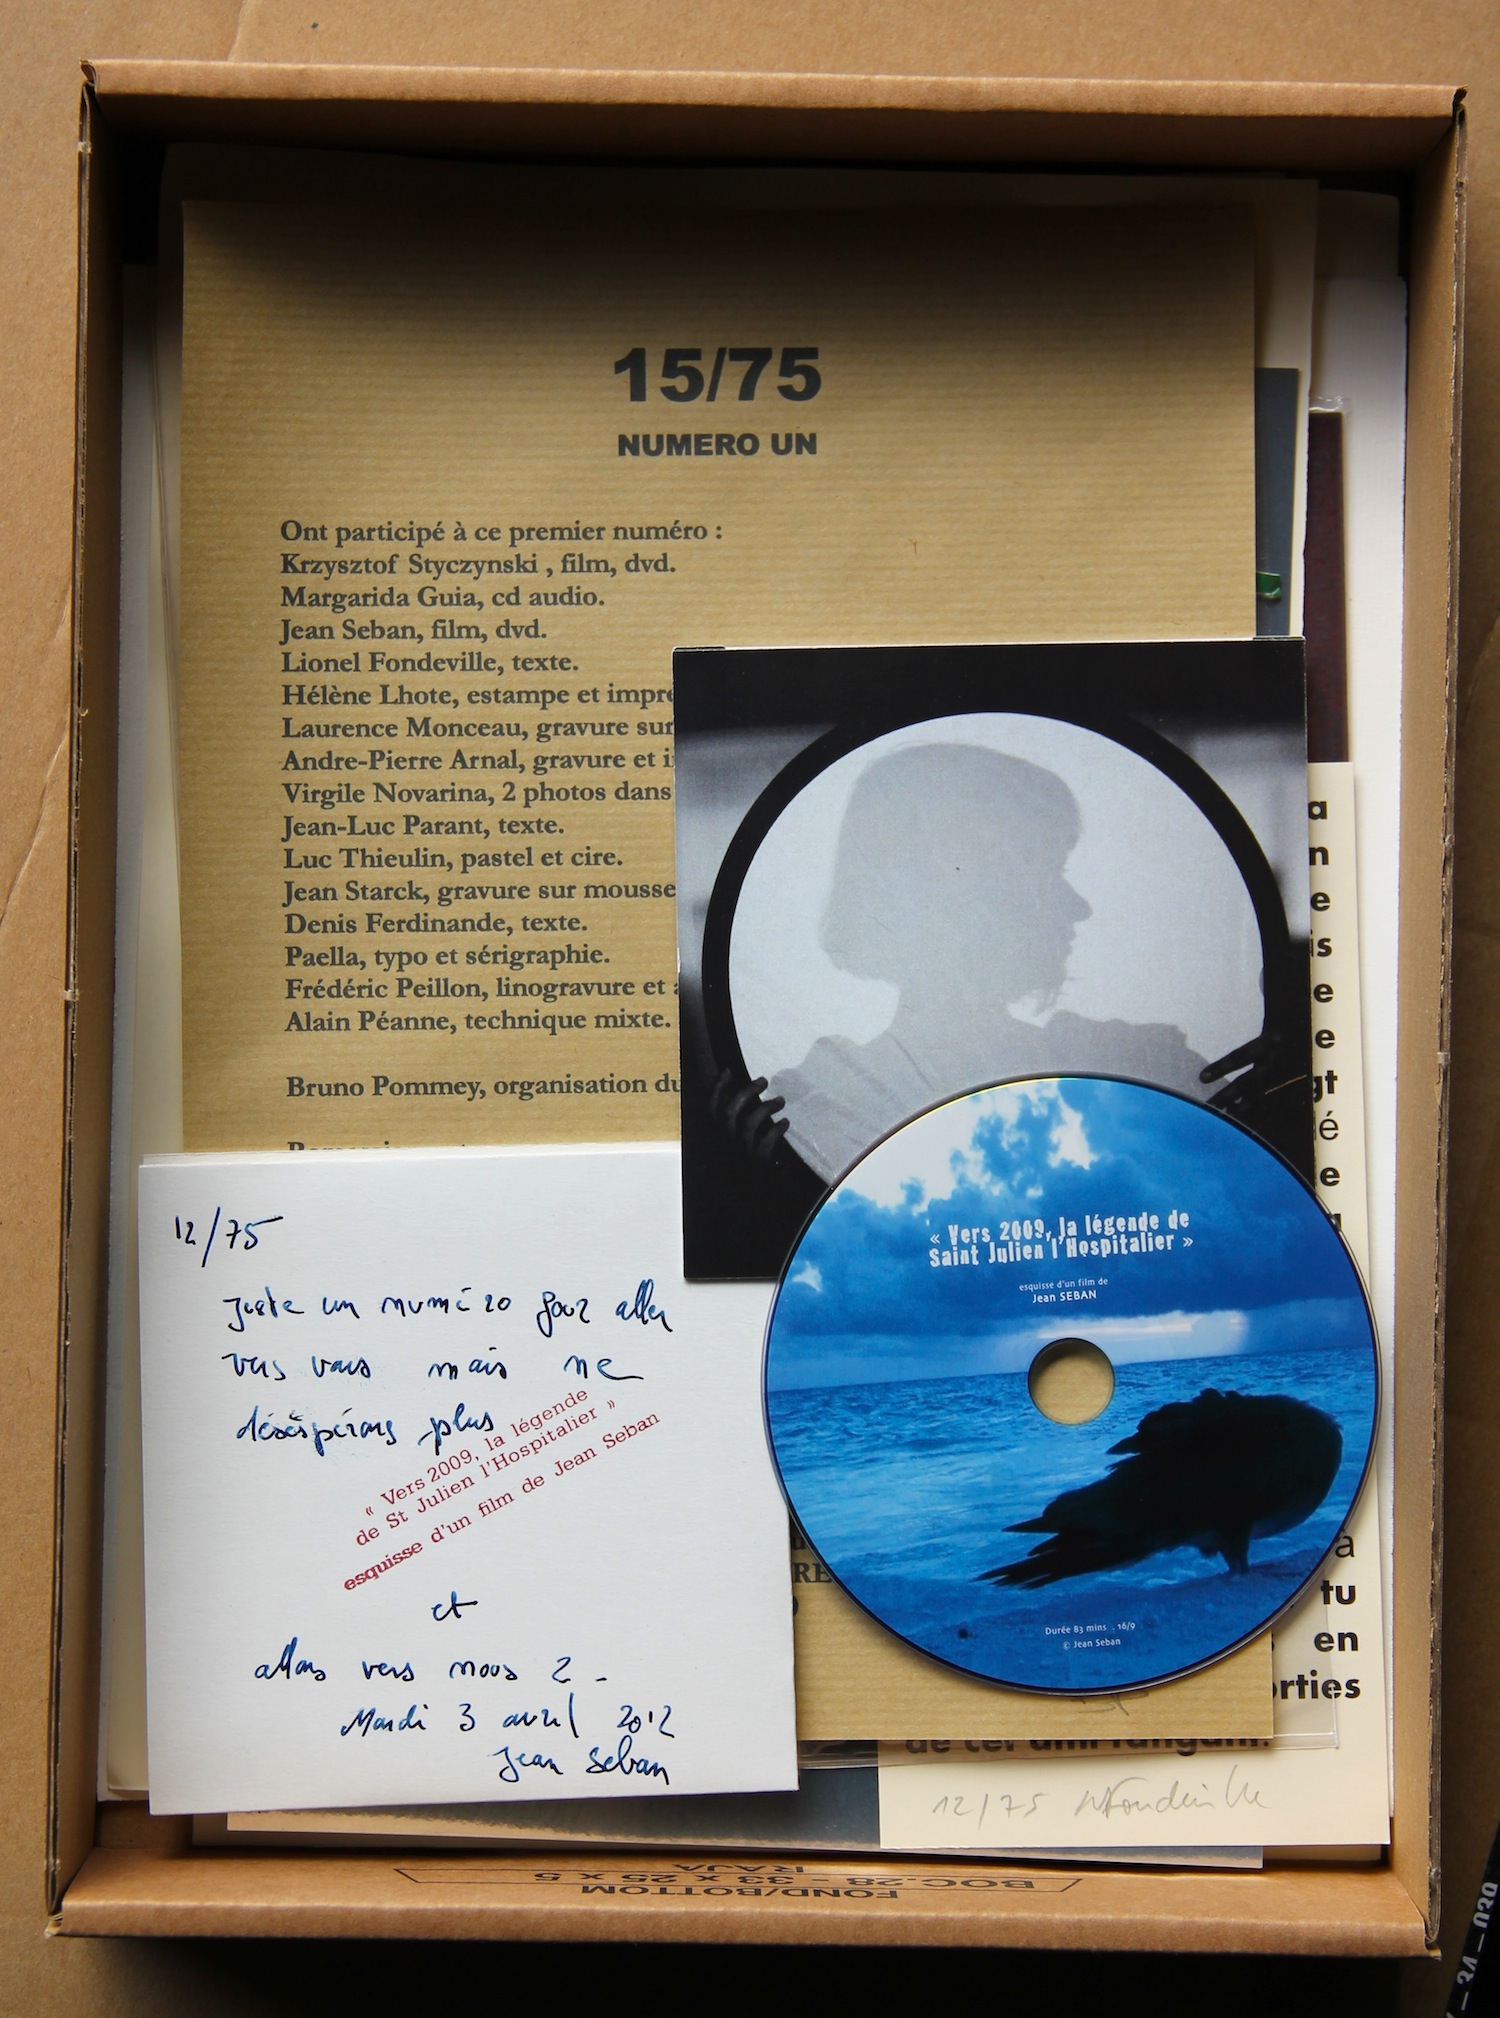 15/75
NUMERO UN
Ont participé à ce premier numéro :
Krzysztof Styczynski , film, dvd.
Margarida Guia, cd audio.
Jean Seban, film, dvd.
Lionel Fondeville, texte.
Hélène Lhote, estampe et
Laurence Monceau, gravure sur
Andre-Pierre Arnal, gravure et
Virgile Novarina, 2 photos dans
Jean-Luc Parant, texte.
Luc Thieulin, pastel et cire.
Jean Starck, gravure sur mousse
Denis Ferdinande, texte.
Paella, typo et sérigraphie.
Frédéric Peillon, linogravure et
Alain Péanne, technique mixte.
Bruno Pommey, organisation
« Vers 2009, la légende de
Saint Julien l'Hospitalier »
esquisse d'un film de
Jean SEBAN
Durée 83 mins . 16/9
© Jean Seban
12/75
juste un numéro pour aller
vers vous mais ne
désespérons plus
« Vers 2009, la légende
de St Julien l'Hospitalier »
esquisse d'un film de Jean Seban
et
allons vers nous 2 -
Mardi 3 avril 2012
Jean Seban
à
tu
en
12/75
FOND/BOTTOM
BOC.28 - 33 x 25 x 5
RAJA